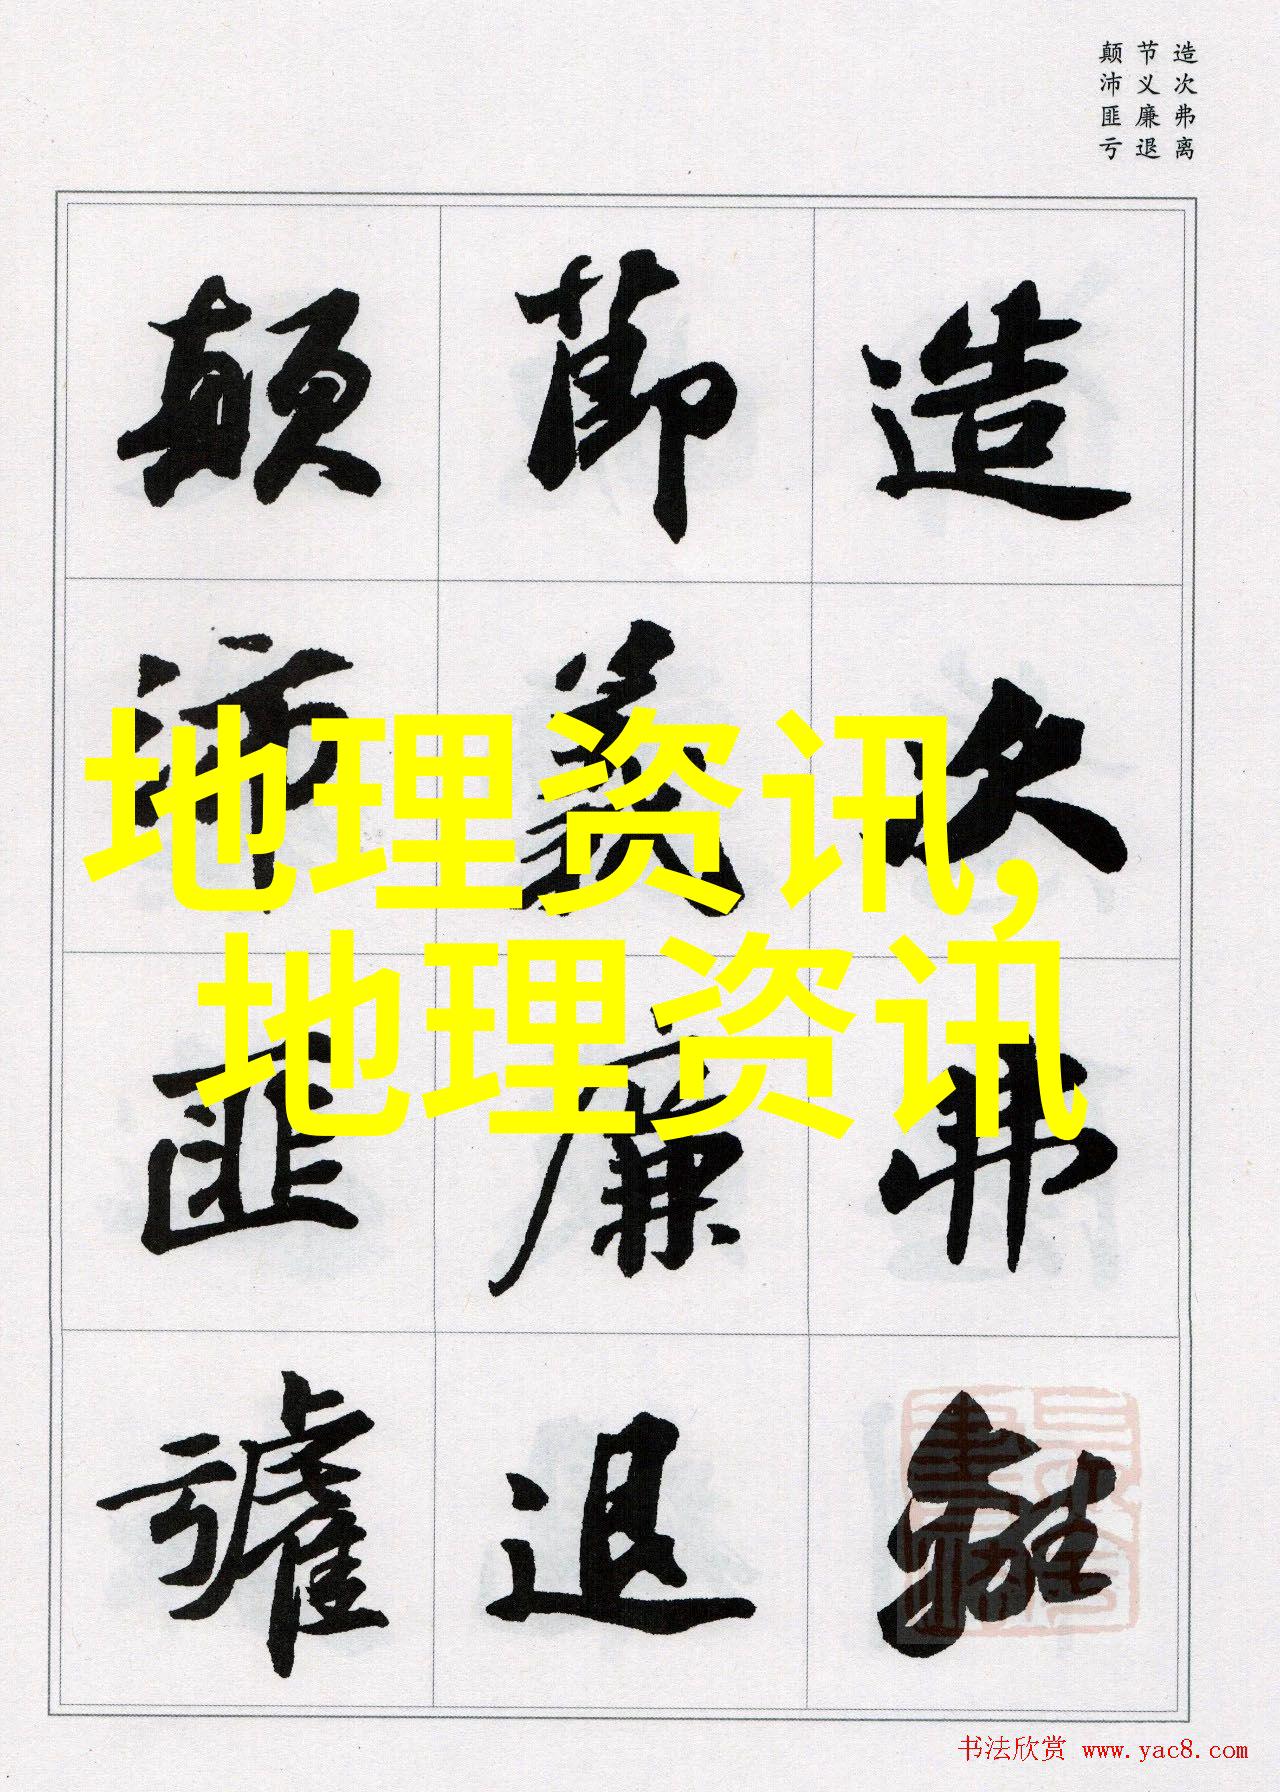 造次弗离
节义廉退
颠沛匪亏
造次弗離
節義廉退
顛沛匪虧
地理资讯,
地理资讯
书法欣赏 www.yac8.com